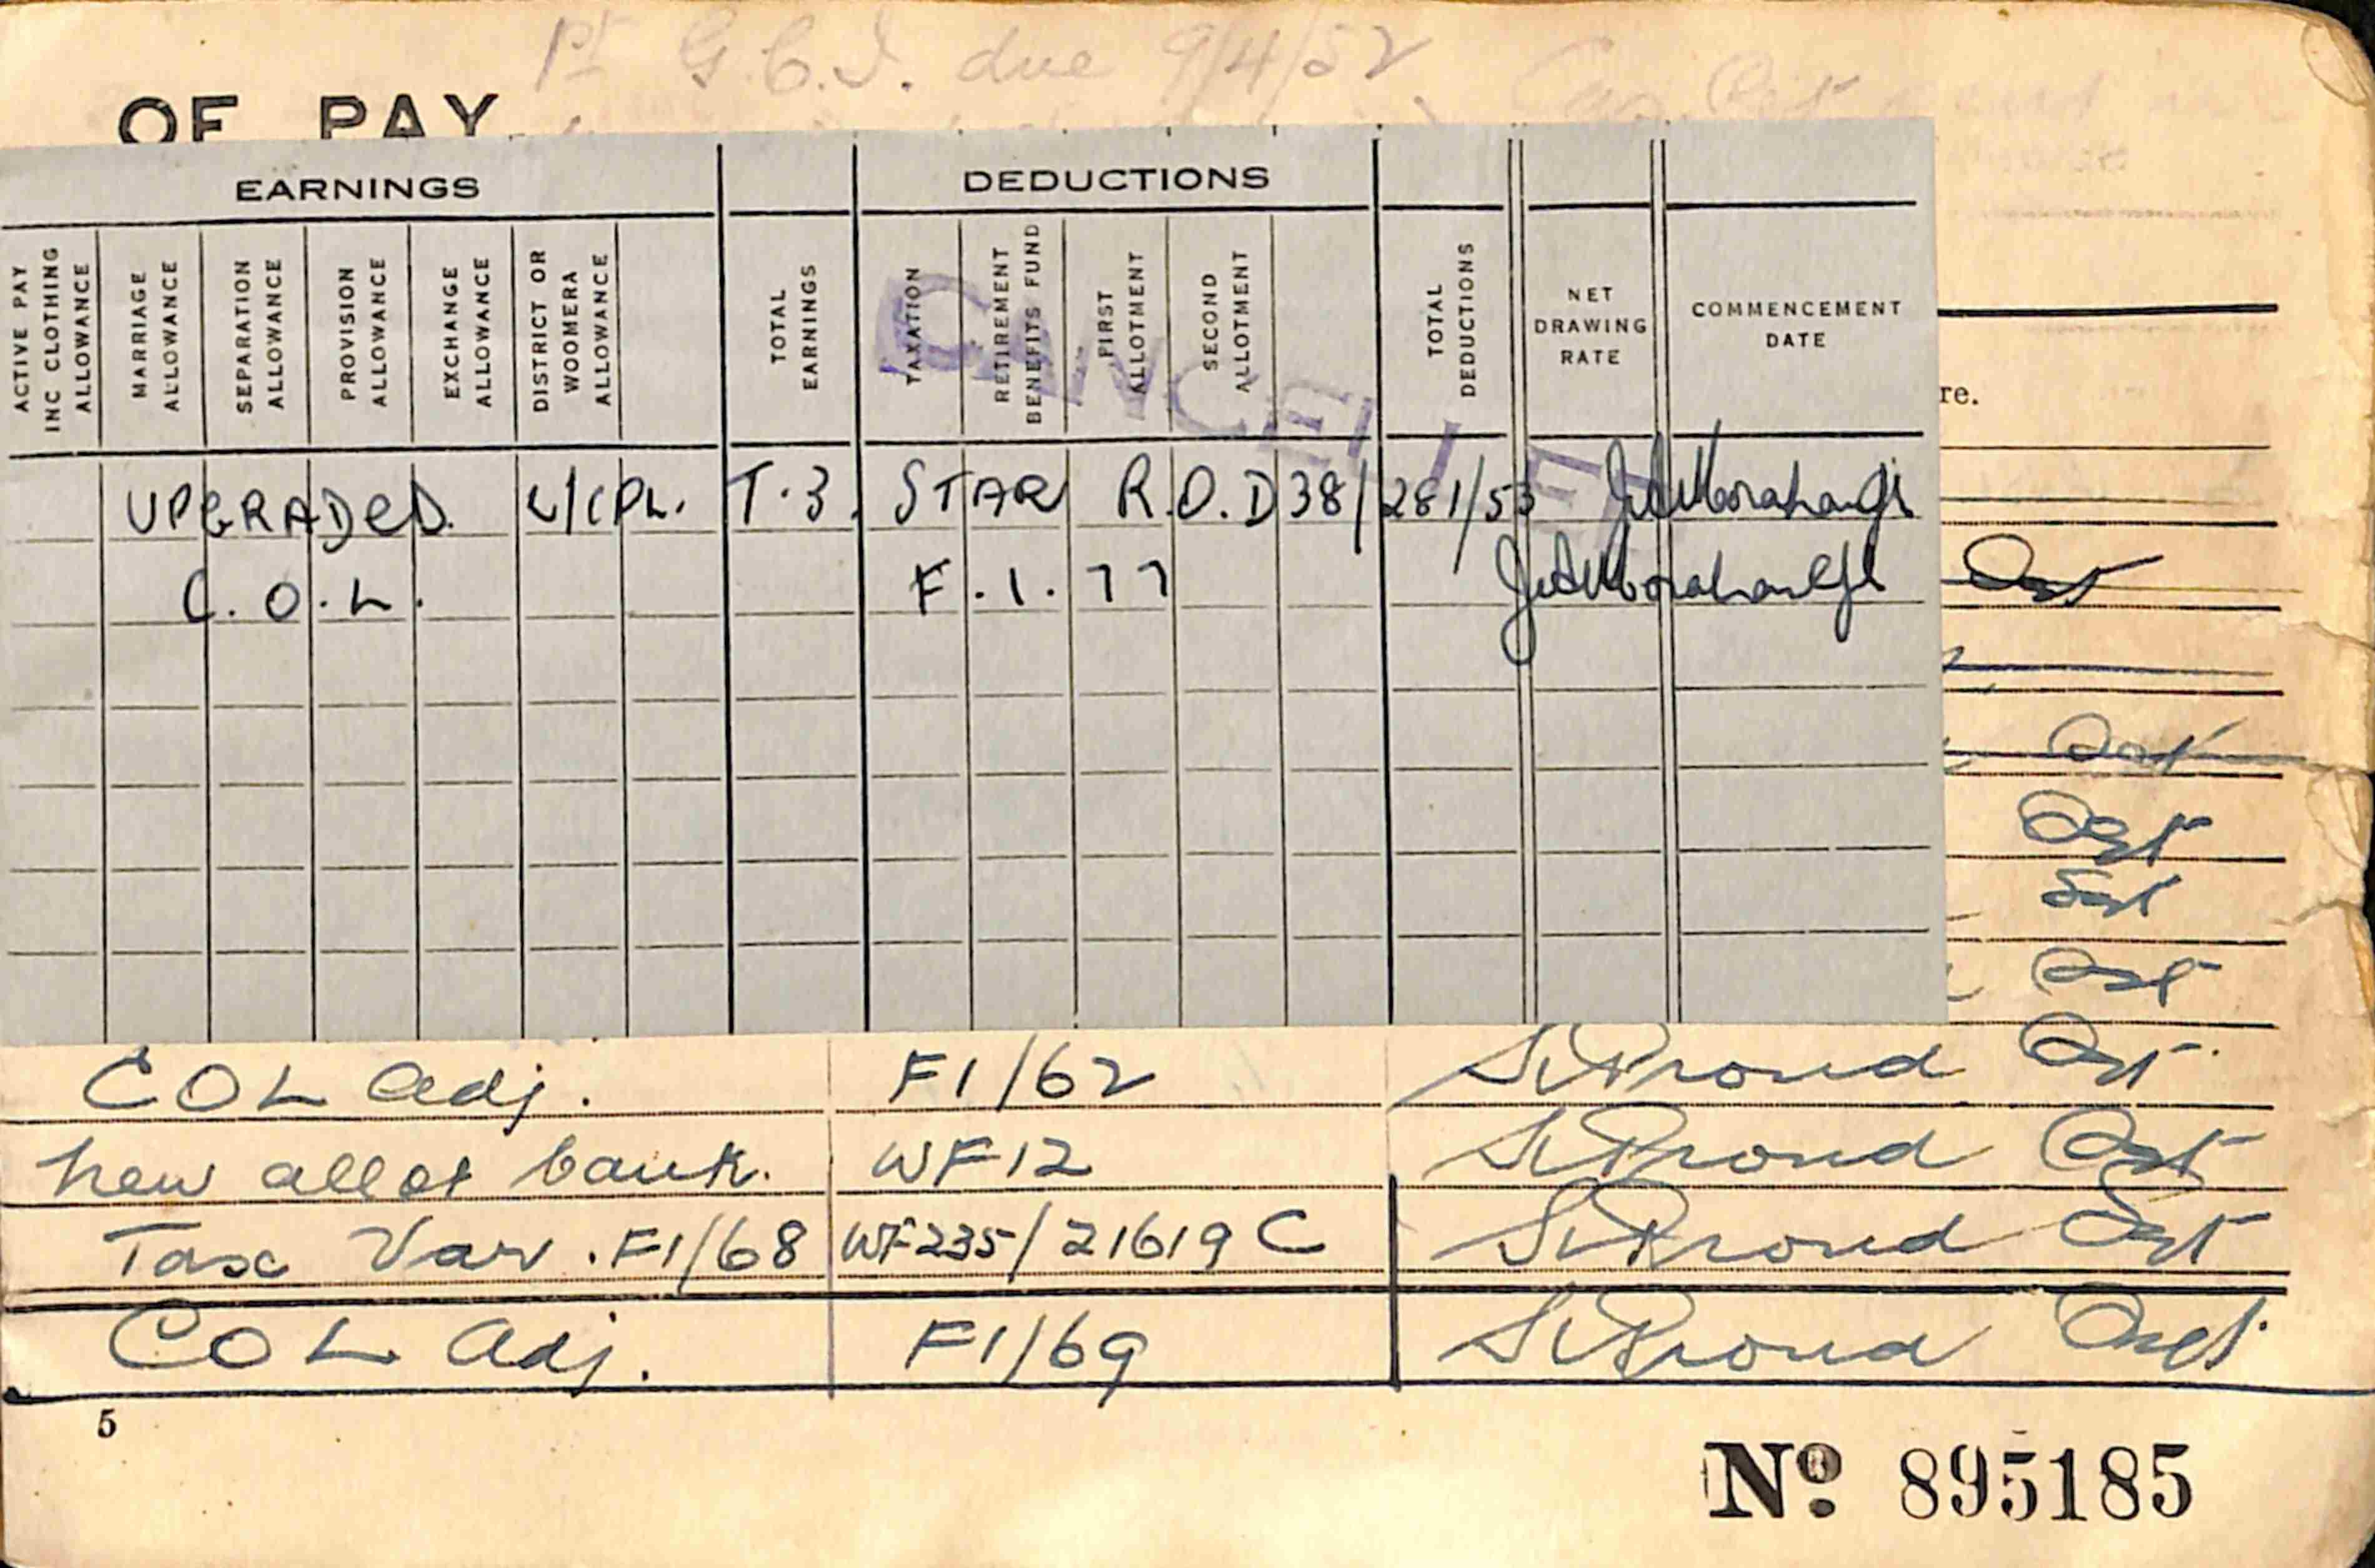 1st G.C.I. due 9/4/52
OF PAY
EARNINGS
DEDUCTIONS
ACTIVE PAY INC CLOTHING ALLOWANCE
MARRIAGE ALLOWANCE
SEPARATION ALLOWANCE
PROVISION ALLOWANCE
EXCHANGE ALLOWANCE
DISTRICT OR WOOMERA ALLOWANCE
TOTAL EARNINGS
TAXATION
RETIREMENT BENEFITS FUND
FIRST ALLOTMENT
SECOND ALLOTMENT
TOTAL DEDUCTIONS
NET DRAWING RATE
COMMENCEMENT DATE
CANCELLED
re.
UPGRADED. L/CPL. T.3. STAR R.O.D 38/281/53
C.O.L. F.1.77
COL adj. F1/62 Proud
New allot bank. WF12 Proud
Tax Var. F1/68 WF235/21619 C Proud
COL adj. F1/69 Proud
5
No. 895185